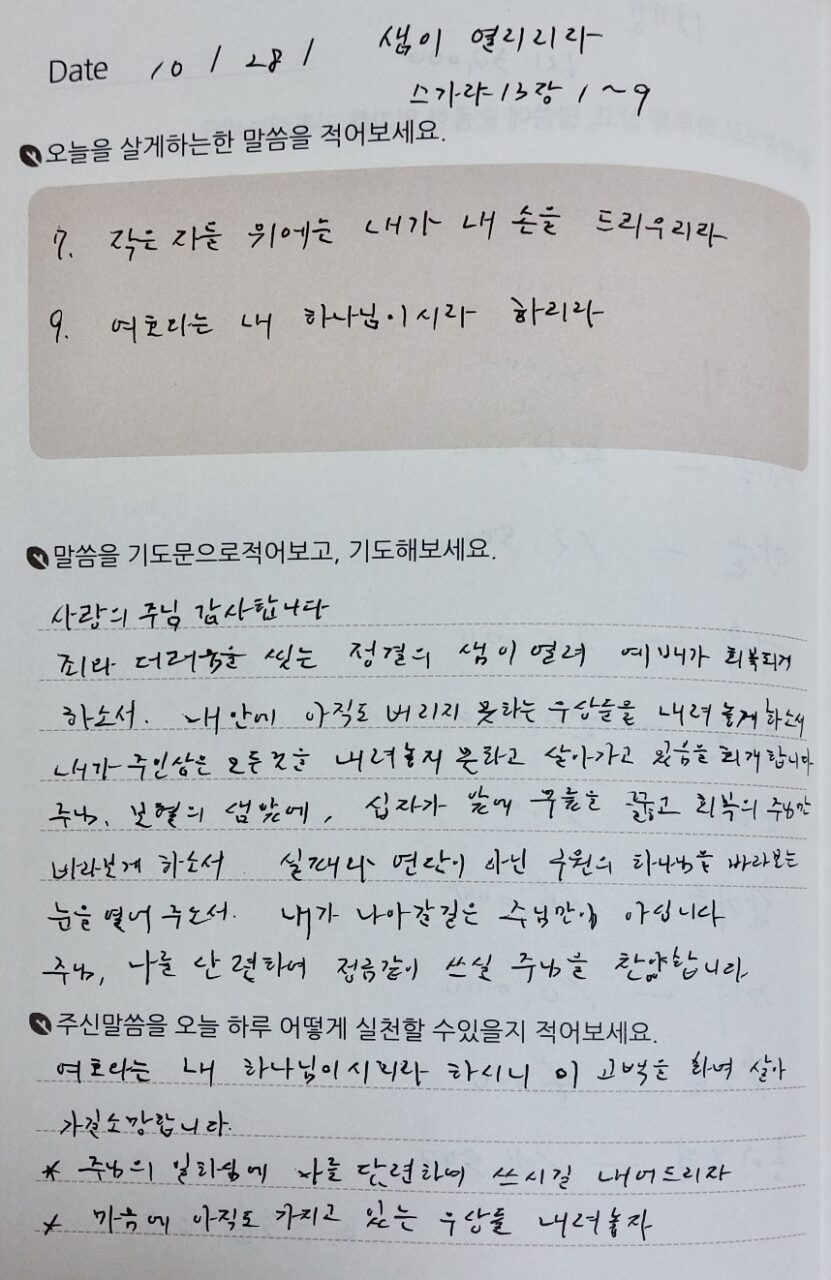 샘이 열리리라
Date 10 / 28 /
스가랴 13장 1~9
오늘을 살게하는한 말씀을 적어보세요.
7. 작은 자들 위에는 내가 내 손을 드리우리라
9. 여호와는 내 하나님이시라 하리라
말씀을 기도문으로적어보고, 기도해보세요.
사랑의 주님 감사합니다
죄와 더러움을 씻는 정결의 샘이 열려 예배가 회복되게
하소서. 내안에 아직도 버리지 못하는 우상들을 내려 놓게 하소서
내가 주인삼은 모든것을 내려놓지 못하고 살아가고 있음을 회개합니다
주님, 보혈의 샘앞에, 십자가 앞에 무릎을 꿇고 회복의 주님만
바라보게 하소서 실패와 연단이 아닌 구원의 하나님을 바라보는
눈을 열어 주소서. 내가 나아갈길은 주님만이 아십니다
주님, 나를 단련하여 정금같이 쓰실 주님을 찬양합니다
주신말씀을 오늘 하루 어떻게 실천할 수있을지 적어보세요.
여호와는 내 하나님이시라 하시니 이 고백을 하며 살아
가길소망합니다.
* 주님의 일하심에 나를 단련하여 쓰시길 내어드리자
* 마음에 아직도 가지고 있는 우상들 내려놓자